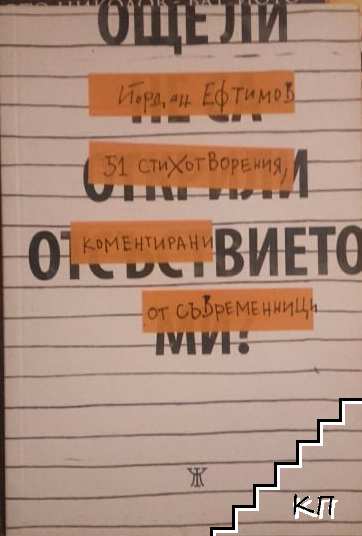 ОЩЕ ЛИ
Йордан Ефтимов
НЕ СА
51 стихотворения,
ОТКРИЛИ
ОТСЪСТВИЕТО
коментирани
от съвременници
МИ?
КП